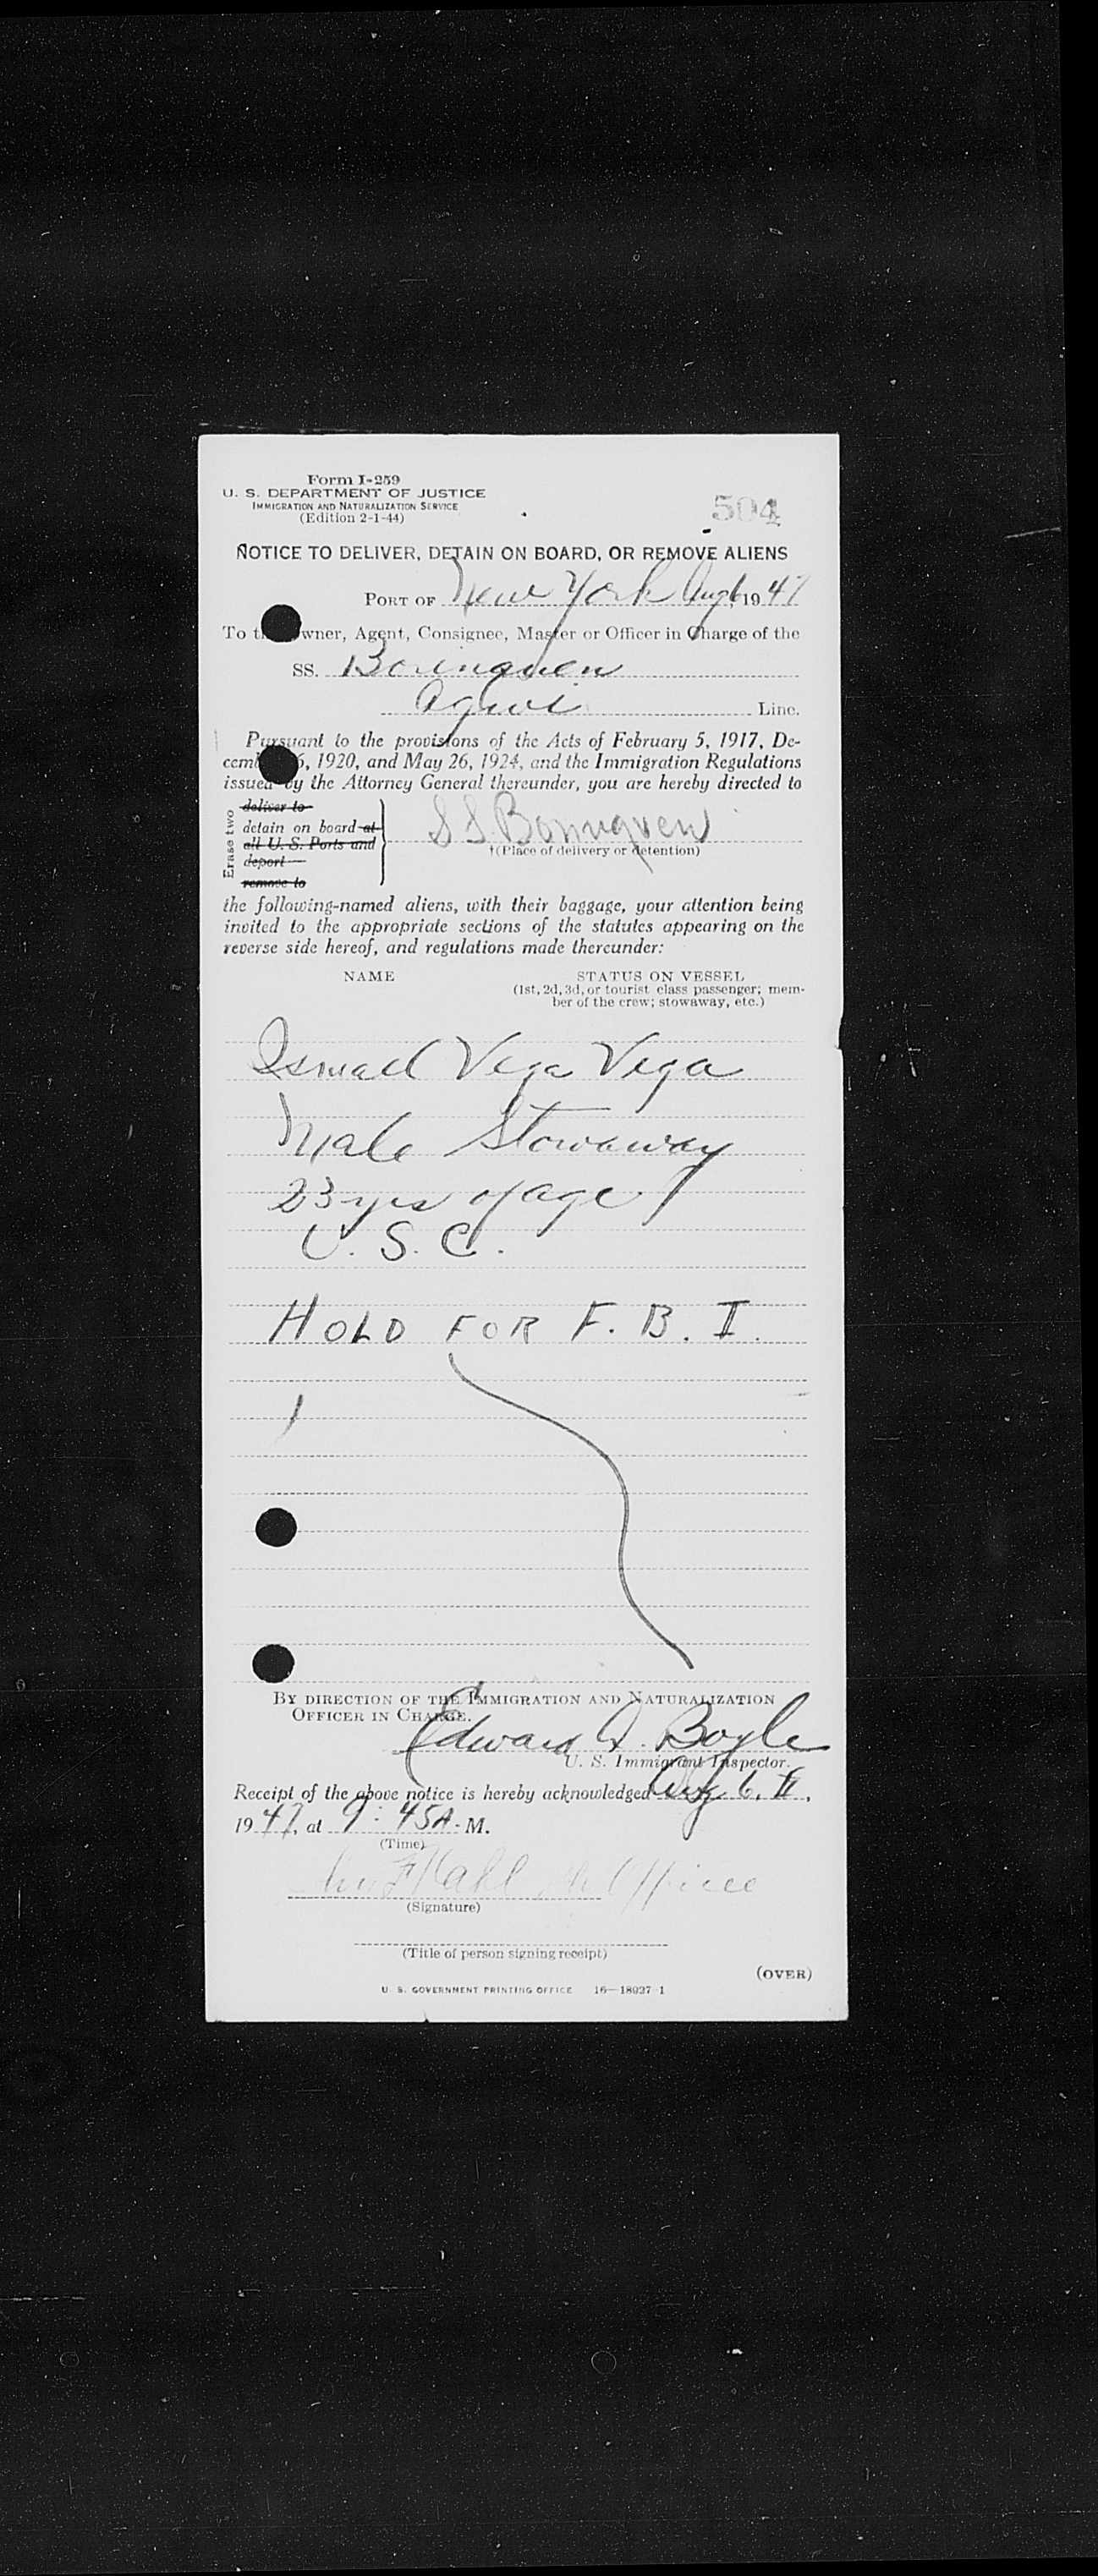 Form I-259
U. S. DEPARTMENT OF JUSTICE
IMMIGRATION AND NATURALIZATION SERVICE
(Edition 2-1-44)
504
NOTICE TO DELIVER, DETAIN ON BOARD, OR REMOVE ALIENS
PORT OF New York Aug 6, 1947
To t wner, Agent, Consignee, Master or Officer in Charge of the
SS. Borinquen
Agwi Line.
Pursuant to the provisions of the Acts of February 5, 1917, De-
cem 6, 1920, and May 26, 1924, and the Immigration Regulations
issued by the Attorney General thereunder, you are hereby directed to
Erase two
deliver to
detain on board at
all U. S. Ports and
deport
remove to
S S. Borinquen
†(Place of delivery or detention)
the following-named aliens, with their baggage, your attention being
invited to the appropriate sections of the statutes appearing on the
reverse side hereof, and regulations made thereunder:
NAME
STATUS ON VESSEL
(1st, 2d, 3d, or tourist class passenger; mem-
ber of the crew; stowaway, etc.)
Ismael Vega Vega
Male Stowaway
23 yrs of age
U. S. C.
HOLD FOR F. B. I.
BY DIRECTION OF THE IMMIGRATION AND NATURALIZATION
OFFICER IN CHARGE.
Edward J. Boyle
U. S. Immigrant Inspector.
Receipt of the above notice is hereby acknowledged Aug. 6,
1947, at 9:45 A. M.
(Time)
Office
(Signature)
(Title of person signing receipt)
(OVER)
U. S. GOVERNMENT PRINTING OFFICE 16—18037-1